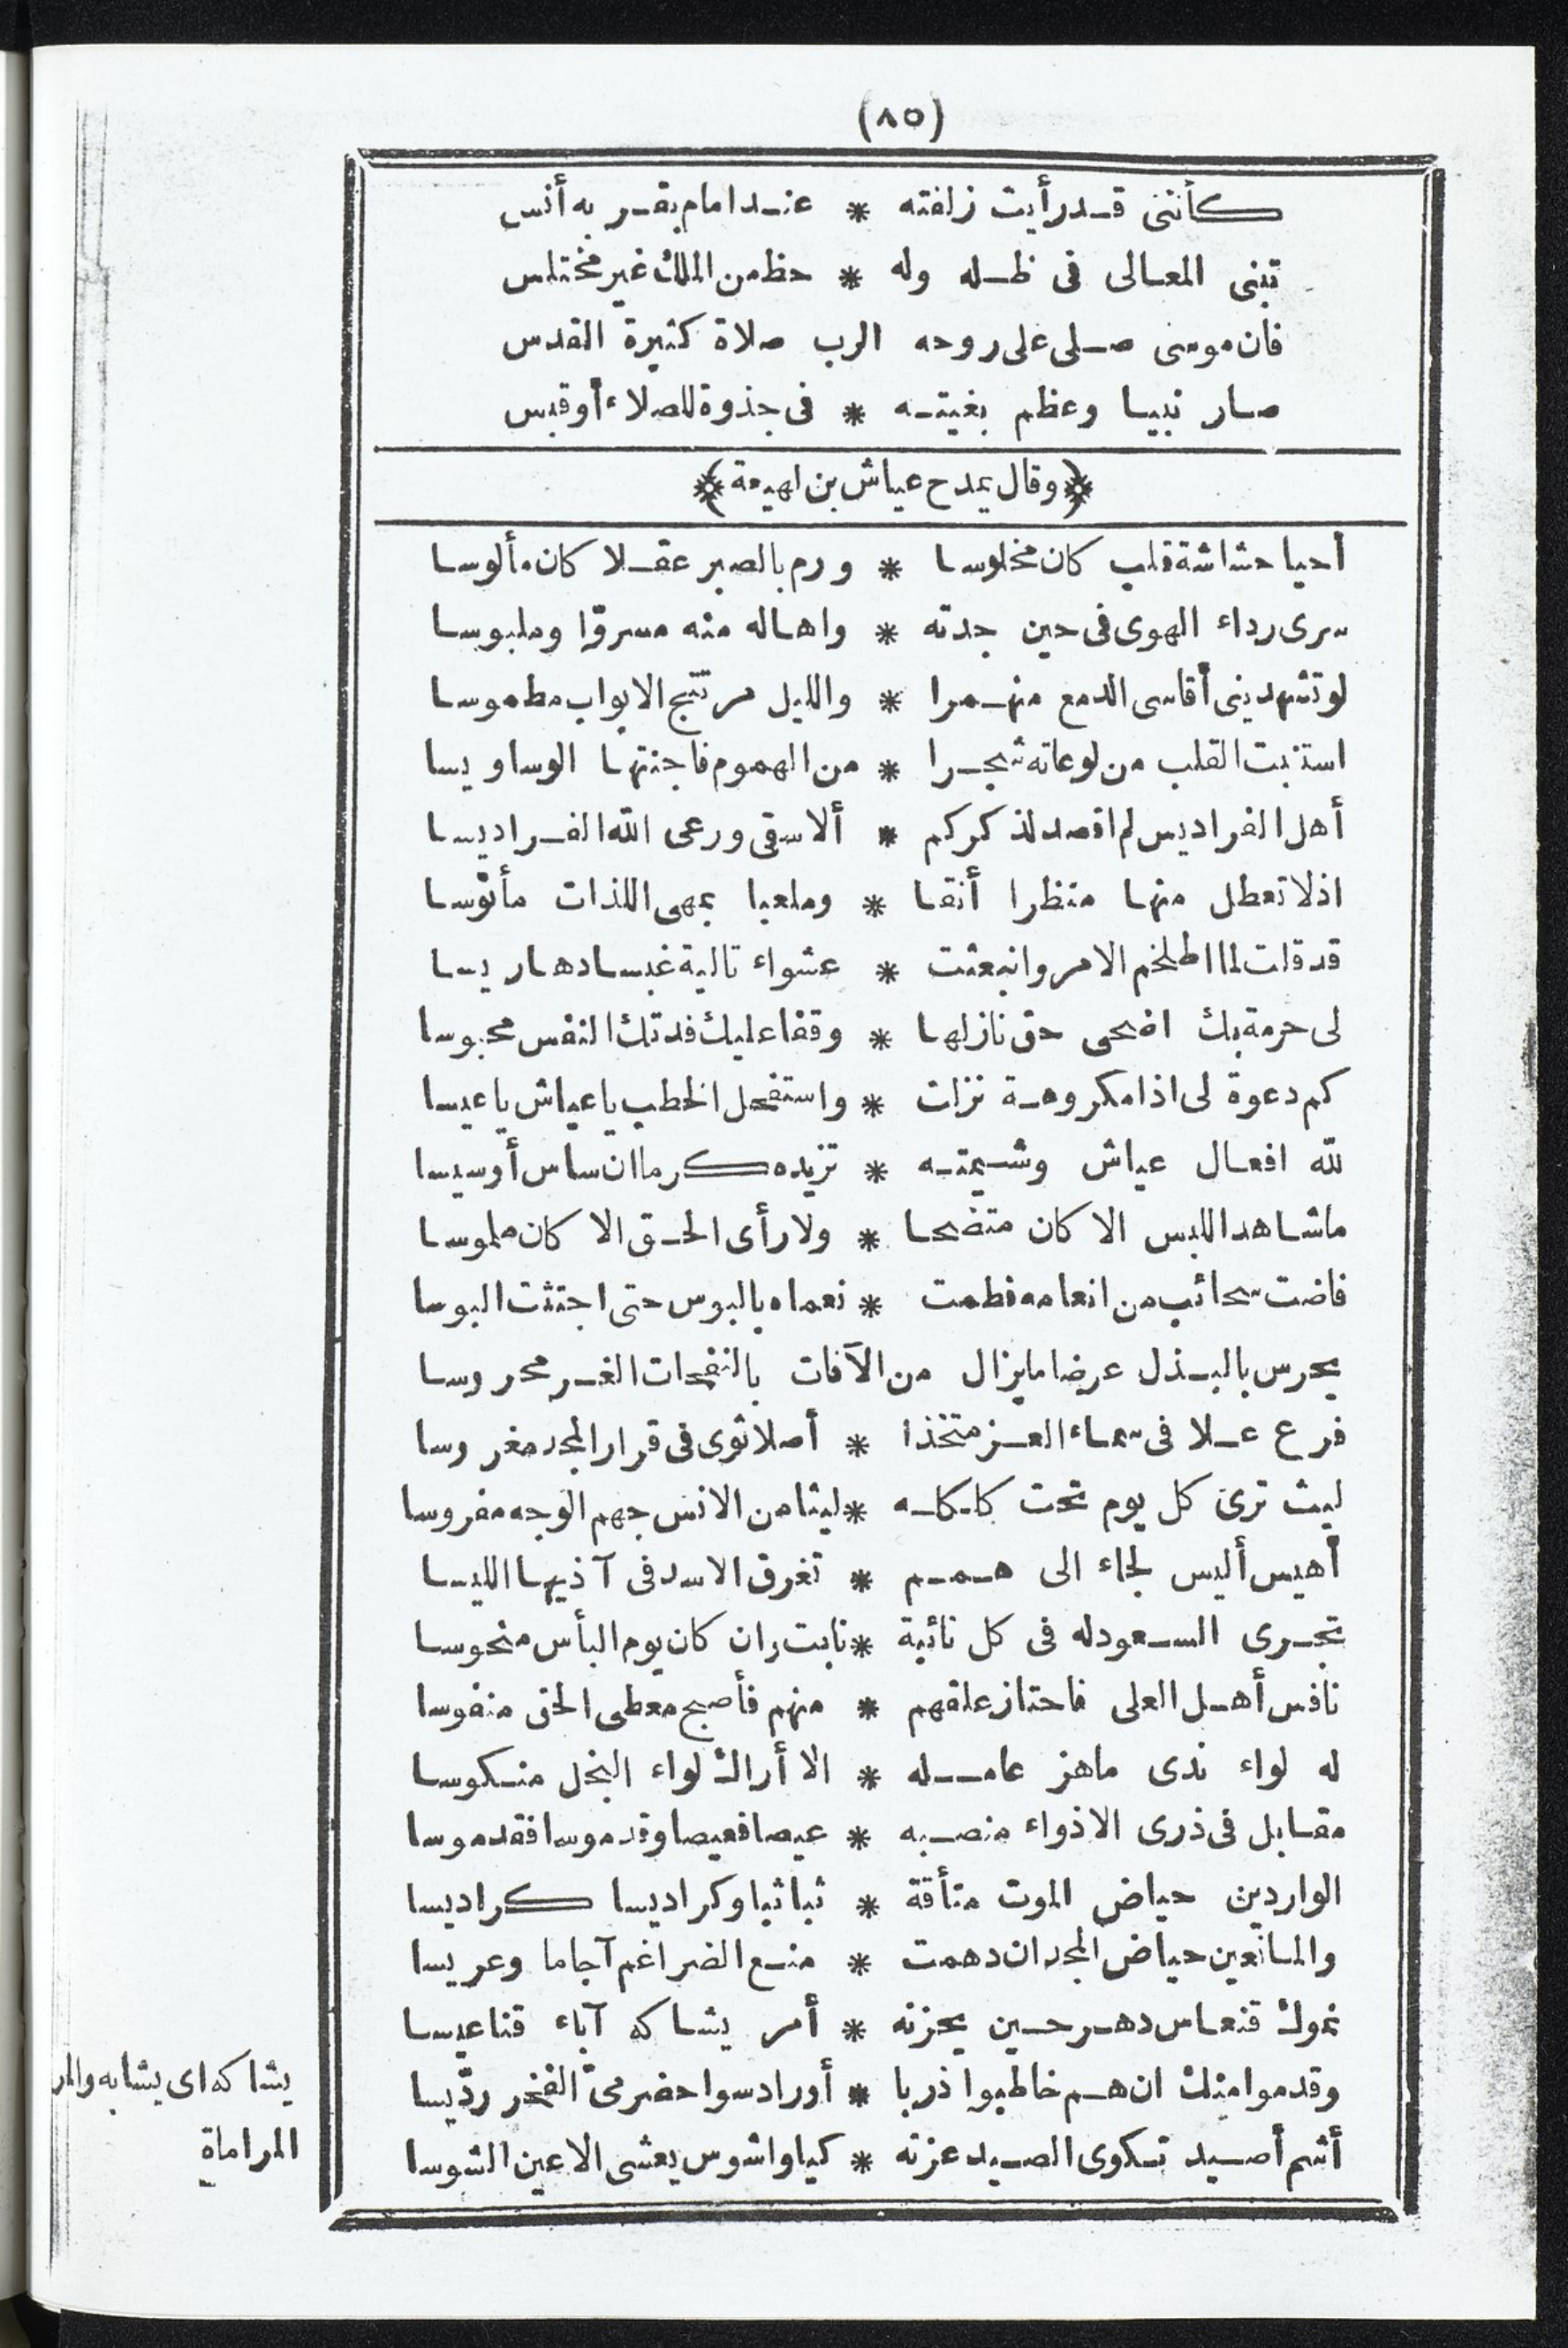 (٨٥)
كأنني قد رأيت زلفته * عند امام بقر به أنس
تبنى المعالى فى ظله وله * حظ من الملك غير مختلس
فان موسى صلى على روحه الرب صلاة كثيرة القدس
صار نبيا وعظم بغيته * فى جذوة للصلاء أو قبس
﴿وقال يمدح عياش بن لهيعة﴾
أحيا حشاشة قلب كان مخلوسا * ورم بالصبر عقلا كان مألوسا
سرى رداء الهوى فى حين جدته * واها له منه مسروّا وملبوسا
لو تشهدينى أقاسى الدمع منهمرا * والليل مرتتج الابواب مطموسا
استنبت القلب من لوعاته شجرا * من الهموم فاجنتها الوساويسا
أهل الفراديس لم اقصد لذكركم * ألا سقى ورعى الله الفراديسا
اذ لا تعطل منها منظرا أنقا * وملعبا بمهى اللذات مأنوسا
قد قلت لما اطلخم الامر وانبعثت * عشواء تالية غبسا دهاريسا
لى حرمة بك اضحى حق نازلها * وقفا عليك فدتك النفس محبوسا
كم دعوة لى اذا مكروهة نزلت * واستفحل الخطب يا عياش يا عيسا
لله افعال عياش وشيمته * تزيده كرما ان ساس أو سيسا
ما شاهد اللبس الا كان متضحا * ولا رأى الحق الا كان ملموسا
فاضت سحائب من انعامه فطمت * نعماه بالبوس حتى اجتثت البوسا
يحرس بالبذل عرضا ما يزال من الآفات بالنفحات الغر محروسا
فرع علا فى سماء العز متخذا * أصلا ثوى فى قرار المجد مغروسا
ليث ترى كل يوم تحت كلكله * ليثا من الانس جهم الوجه مفروسا
أهيس أليس لجاء الى همم * تغرق الاسد فى آذيها الليسا
تجرى السعود له فى كل نائبة * نابت وان كان يوم البأس منحوسا
نافس أهل العلى فاحتاز علقهم * منهم فأصبح معطى الحق منفوسا
له لواء ندى ما هز عامله * الا أراك لواء البخل منكوسا
مقابل فى ذرى الاذواء منصبه * عيصا فعيصا وقدموسا فقدموسا
الواردين حياض الموت متأقة * ثبا ثبا وكراديسا كراديسا
والمانعين حياض المجد ان دهمت * منع الضراغم آجاما وعريسا
نموك قنعاس دهر حين يحزنه * أمر يشاكه آباء قناعيسا
وقدموا منك ان هم خاطبوا ذربا * أو رادسوا حضرمىّ الفخر ردّيسا
أشم أصيد تكوى الصيد عزته * كيا واشوس يعشى الاعين الشوسا
يشاكه اى يشابه
المراماة